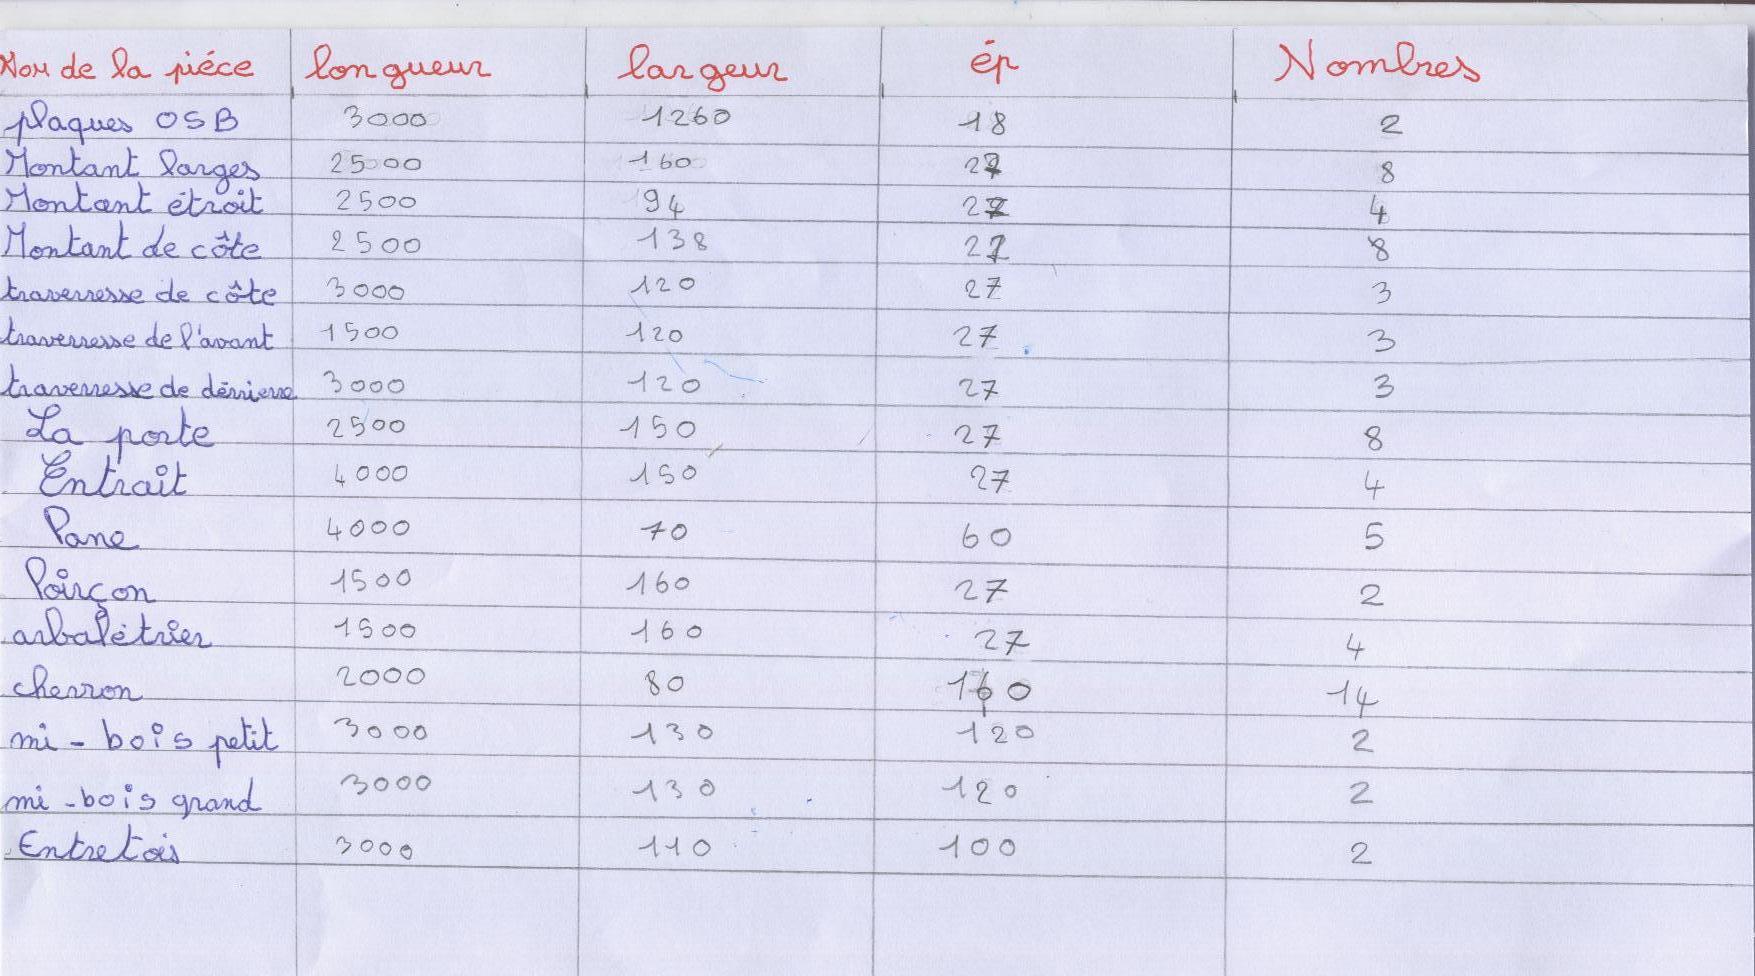 Nom de la piéce longueur largeur ép Nombres
plaques OSB 3000 1260 18 2
Montant larges 25000 160 27 8
Montant étroit 2500 94 27 4
Montant de côte 2500 138 27 8
traverresse de côte 3000 120 27 3
traverresse de l'avant 1500 120 27 3
traverresse de dérriere 3000 120 27 3
La porte 2500 150 27 8
Entraît 4000 150 27 4
Pane 4000 70 60 5
Poirçon 1500 160 27 2
arbalétrier 1500 160 27 4
chevron 2000 80 160 14
mi-bois petit 3000 130 120 2
mi-bois grand 3000 130 120 2
Entretois 3000 110 100 2